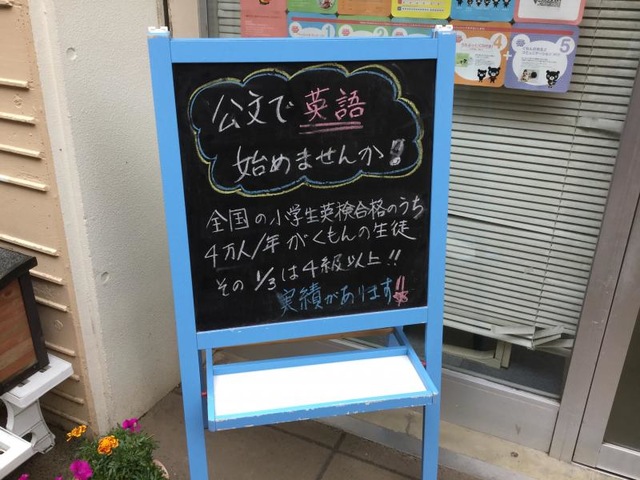 公文で英語
始めませんか!
全国の小学生英検合格のうち
4万人/年がくもんの生徒
その1/3は4級以上!!
実績があります!!
1
2
4
5